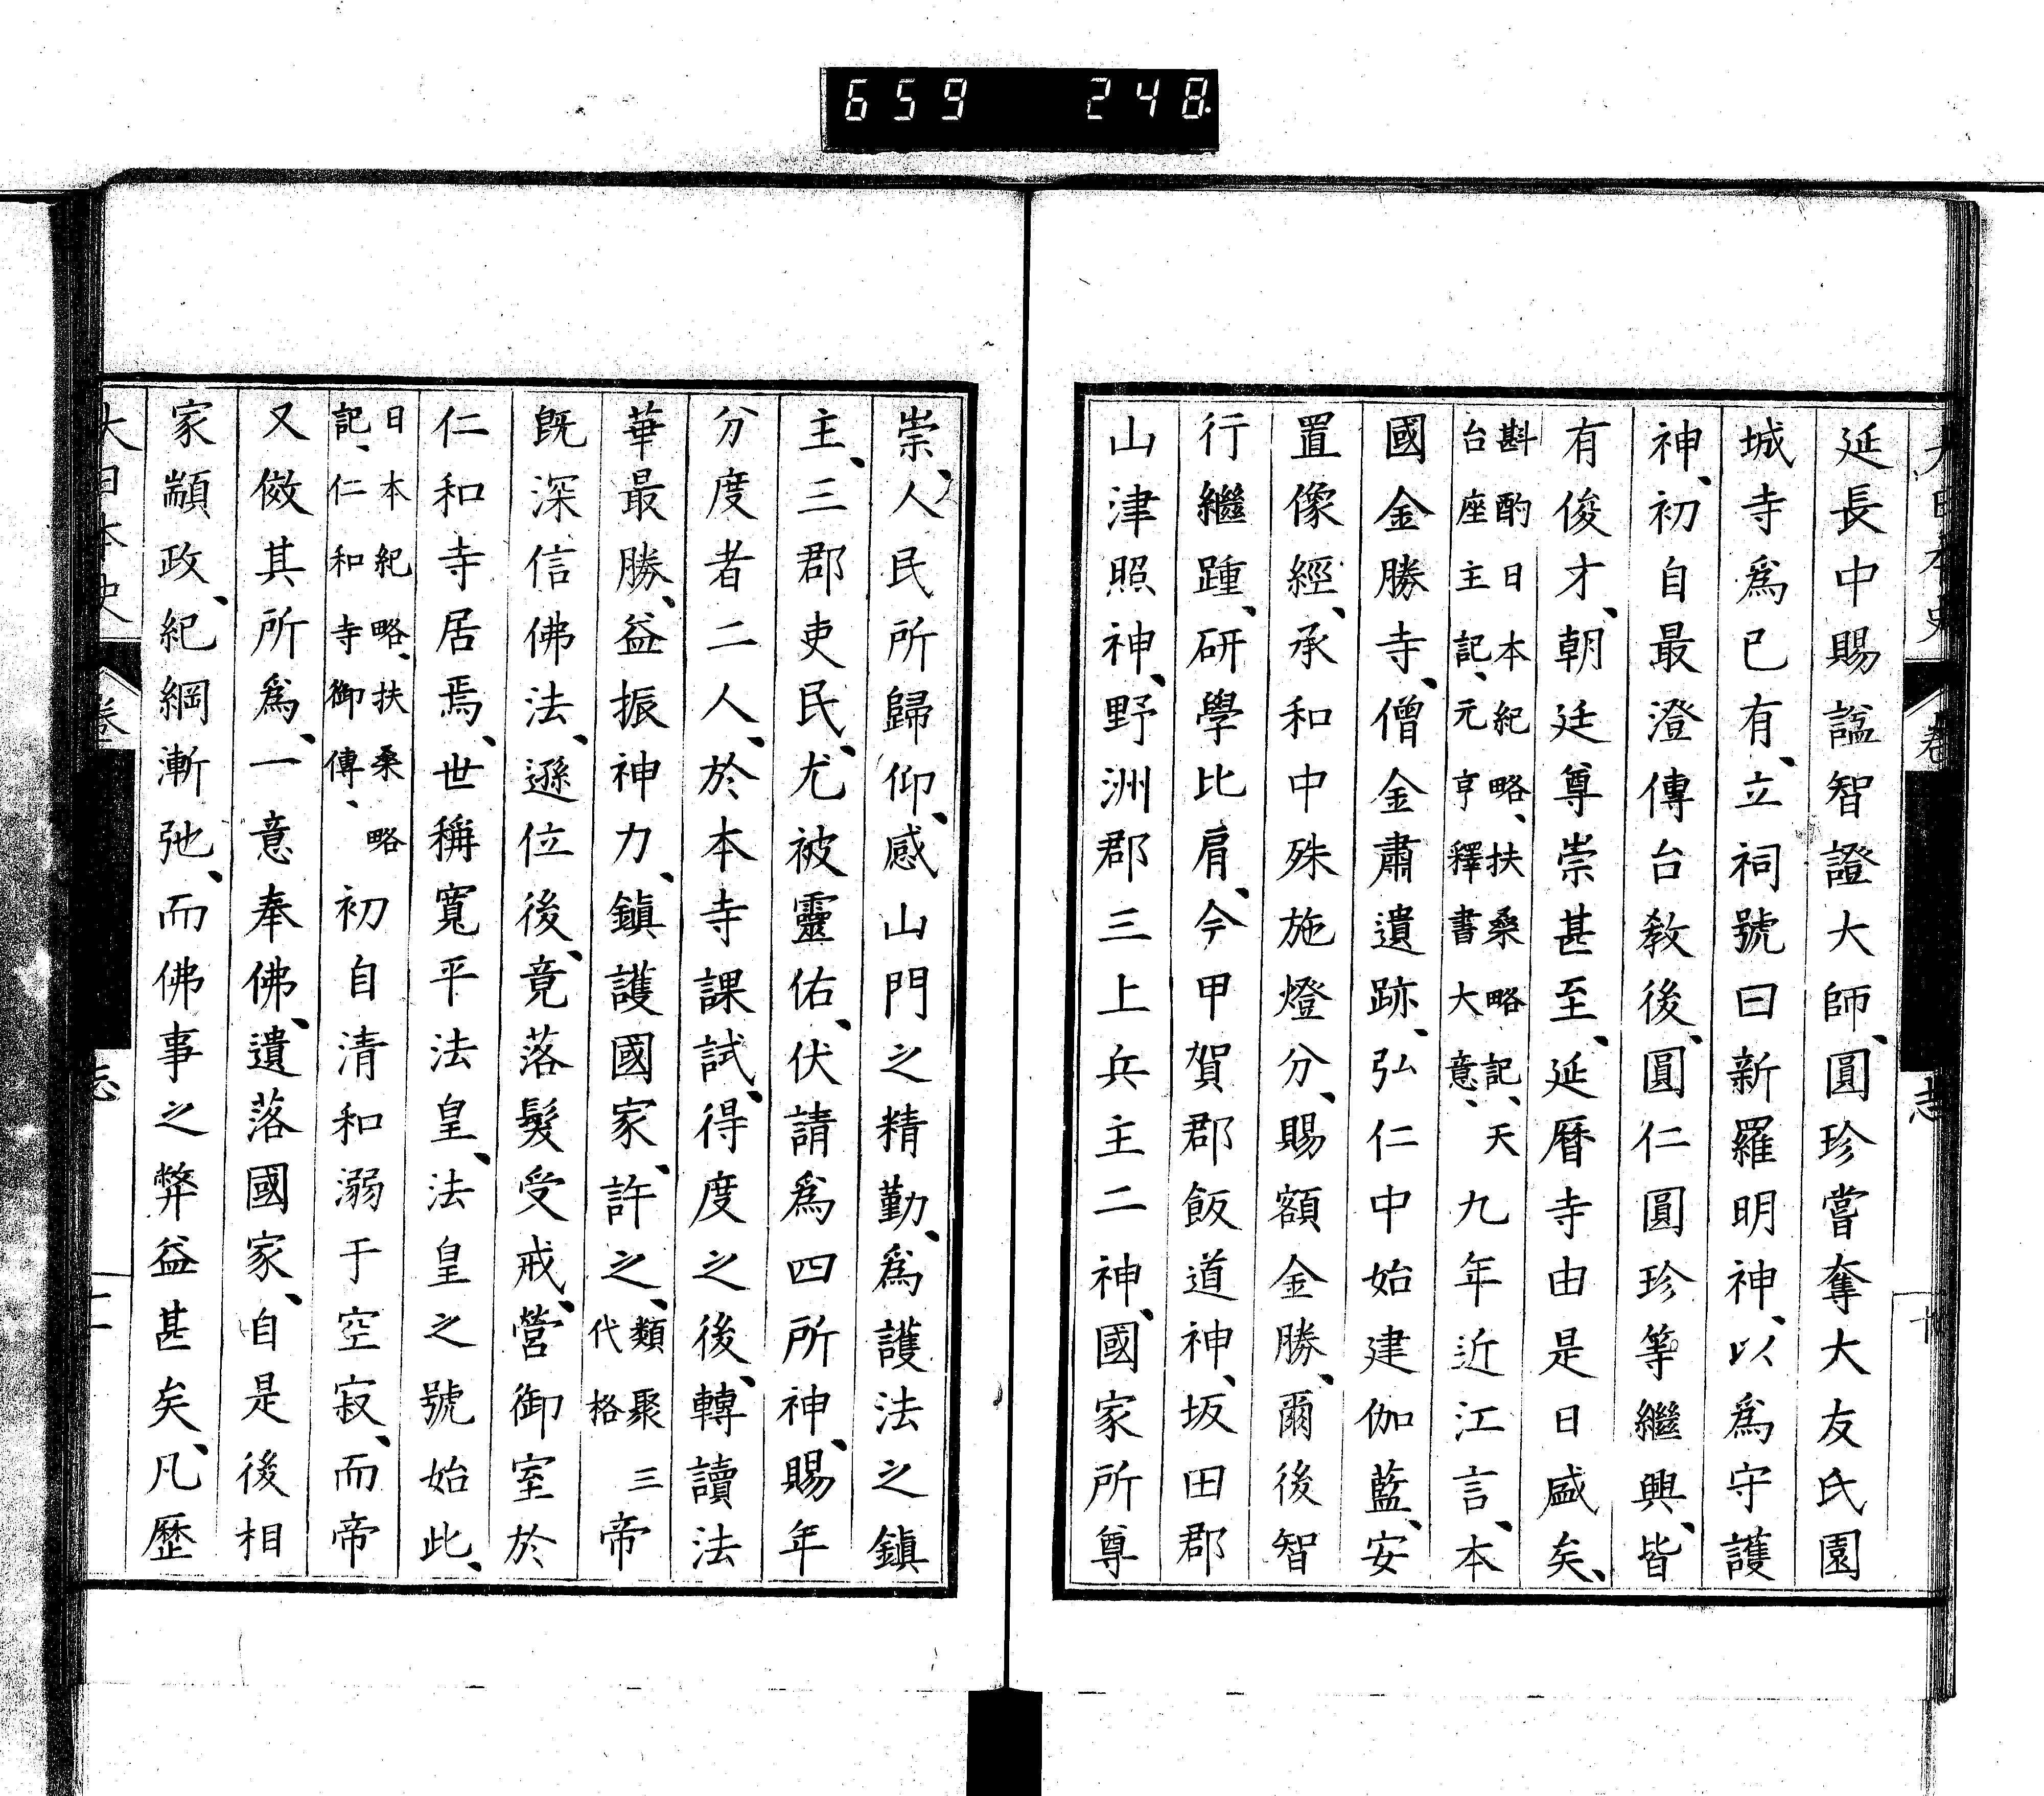 659 248
大日本史 卷 志 十
延長中賜諡智證大師、圓珍嘗奪大友氏園
城寺爲已有、立祠號曰新羅明神、以爲守護
神、初自最澄傳台敎後、圓仁圓珍等繼興、皆
有俊才、朝廷尊崇甚至、延曆寺由是日盛矣、
斟酌日本紀略、扶桑略記、天
台座主記、元亨釋書大意、
九年近江言、本
國金勝寺、僧金肅遺跡、弘仁中始建伽藍、安
置像經、承和中殊施燈分、賜額金勝、爾後智
行繼踵、研學比肩、今甲賀郡飯道神、坂田郡
山津照神、野洲郡三上兵主二神、國家所尊
崇、人民所歸仰、感山門之精勤、爲護法之鎭
主、三郡吏民、尤被靈佑、伏請爲四所神、賜年
分度者二人、於本寺課試、得度之後、轉讀法
華最勝、益振神力、鎭護國家、許之、
類聚三
代格
帝
旣深信佛法、遜位後、竟落髮受戒、營御室於
仁和寺居焉、世稱寬平法皇、法皇之號始此、
日本紀略、扶桑略
記、仁和寺御傳、
初自淸和溺于空寂、而帝
又倣其所爲、一意奉佛、遺落國家、自是後相
家顓政、紀綱漸弛、而佛事之弊益甚矣、凡歷
大日本史 卷 志 十一